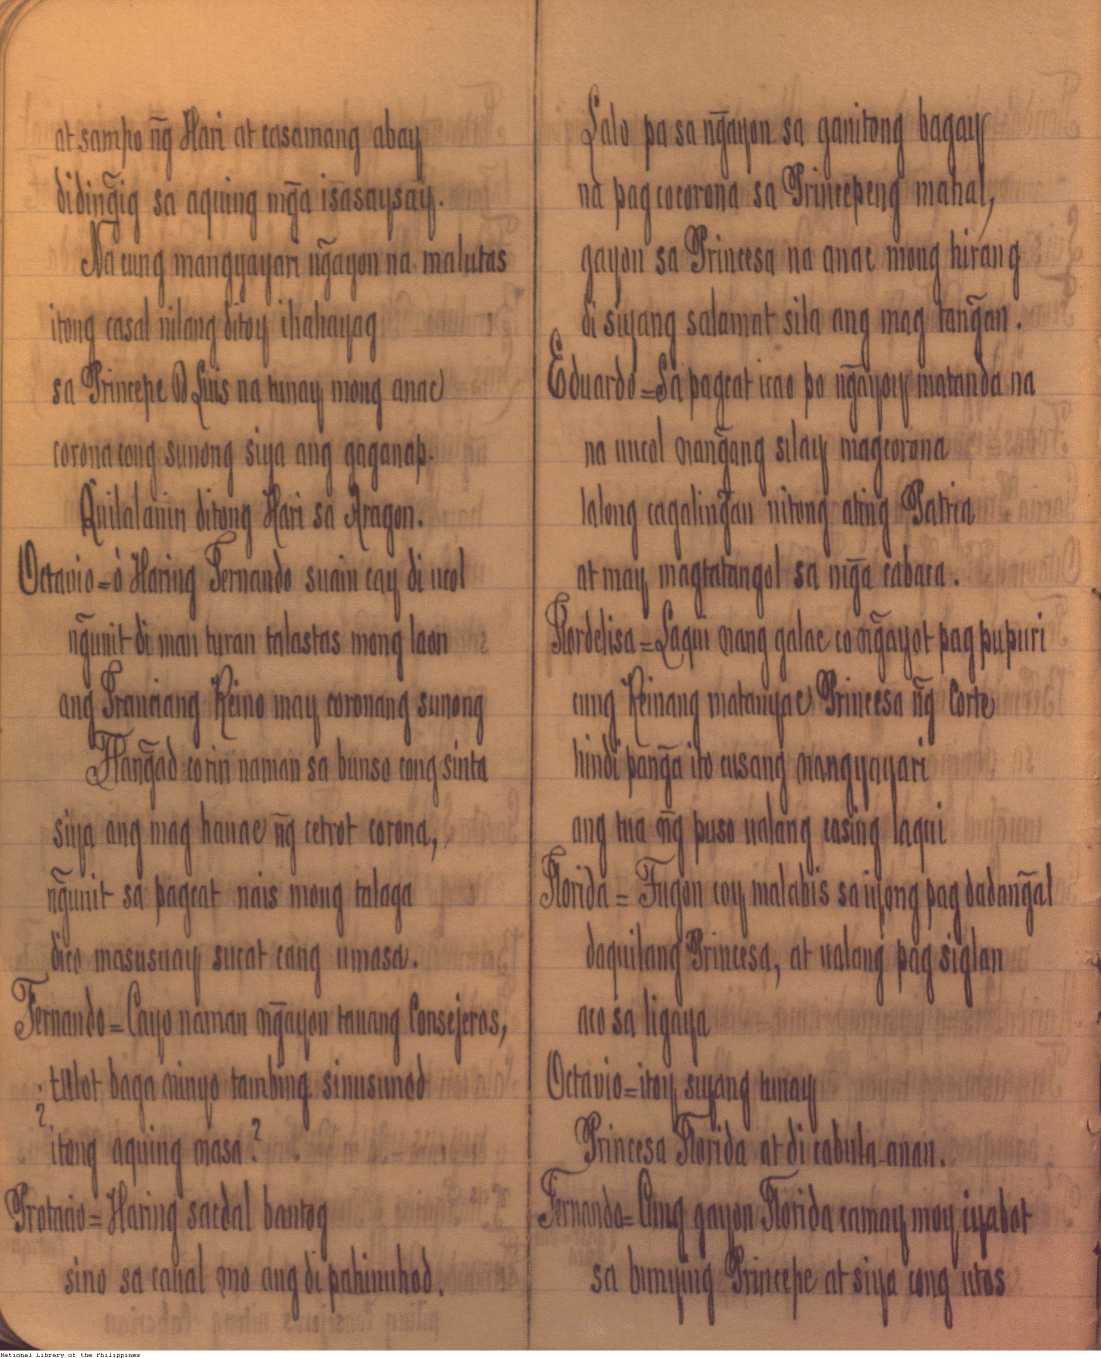 at sampo n̄g Hari at casamang abay
didin̄gig sa aquing mn̄ga isasaysay.
Na cung mangyayari n̄gayon na malutas
itong casal nilang ditoy ihahayag
sa Principe D Luis na tunay mong anac
corona cong sunong siya ang gaganap.
Quilalanin ditong Hari sa Aragon.
Octavio = ó Haring Fernando suain cay di ucol
n̄gunit di man turan talastas mong laon
ang Franciang Reino may coronang sunong
Han̄gad co rin naman sa bunso cong sinta
siya ang mag hauac n̄g cetrot corona,
n̄gunit sa pagcat nais mong talaga
dico masusuay sucat cang umasa.
Fernando = Cayo naman n̄gayon tanang Consejeros,
¿ tulot baga ninyo tambing sinusunod
itong aquing masa?
Protacio = Haring sacdal bantog
sino sa cahal mo ang di pahinuhod.
Lalo pa sa n̄gayon sa ganitong bagay
na pag cocorona sa Princepeng mahal,
gayon sa Princesa na anac mong hirang
di siyang salamat sila ang mag tan̄gan.
Eduardo = Sa pagcat icao po n̄gayoy matanda na
na uucol nan̄gang silay magcorona
lalong cagalin̄gan nitong ating Patria
at may magtatangol sa mn̄ga cabaca.
Flordelisa = Laqui nang galac co n̄gayot pag pupuri
cung Reinang matauyac Princesa n̄g Corte
hindi pan̄ga ito cusang nangyayari
ang tua n̄g puso ualang casing laqui
Florida = Tugon coy malabis sa iyong pag dadan̄gal
daquilang Princesa, at ualang pag siglan
aco sa ligaya
Octavio = itoy siyang tunay
Princesa Florida at di cabula-anan.
Fernando = Cung gayon Florida camay moy iyabot
sa bunying Princepe at siya cong utos
National Library of the Philippines